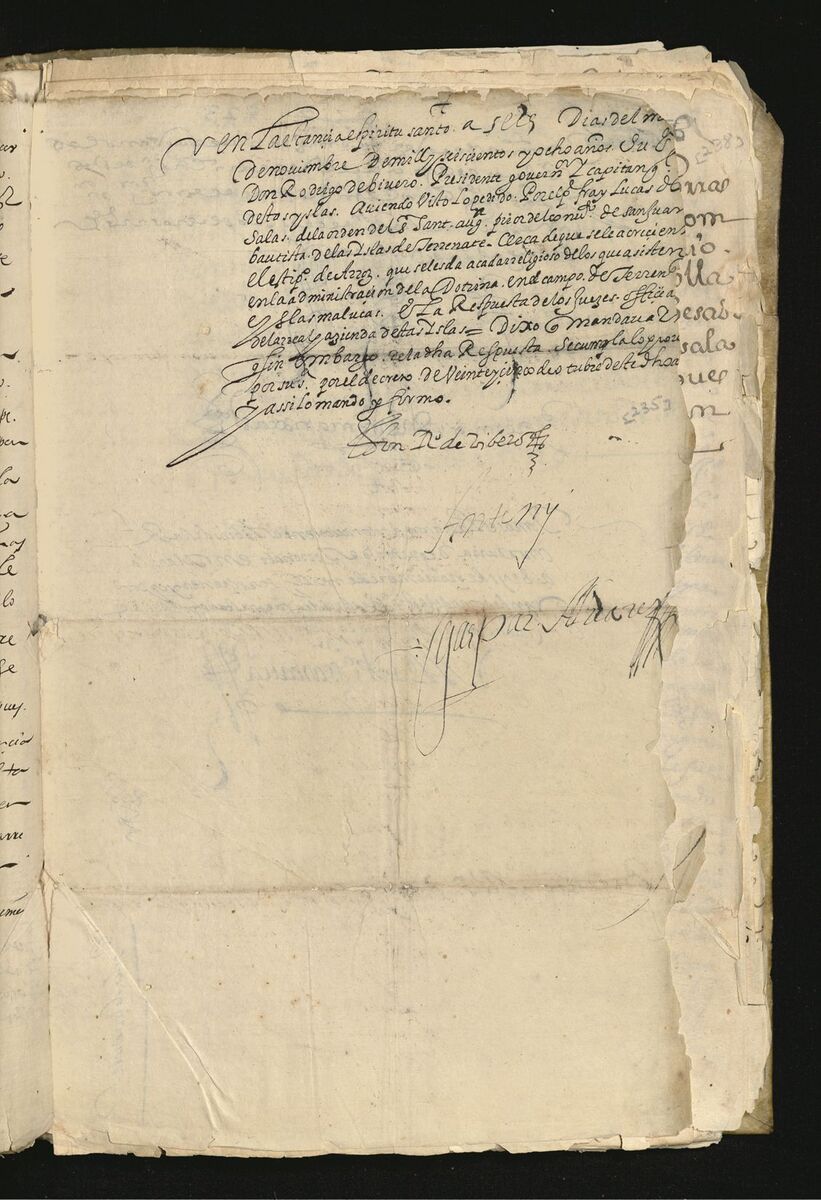 En la estançia espiritu santo. a seis Dias del m
de noviembre De mill y seiscientos y ocho años. Su sª
Don Rodrigo de bivero. Presidente governor y capitan gl
destas yslas. Aviendo Visto lo pedido. Por el pe fray Lucas de
Salas. de la orden del Sr Sant. augn prior del convto de san Juan
bautista. de las Islas de Terrenate. Cerca de que se le acreciente
el estipº de Arroz. que se les da a cada religioso de los que asisten
en la administracion de la Dotrina. en el campo. de Terrena
e yslas malucas. e la Respuesta de los Juezes. officia
de la real hazienda destas Islas = Dixo q mandava
q sin embargo. de la dha Respuesta. Se cumpla lo prov
por su sª por el decreto. De Veinte y cinco de otubre deste dho a
y assi lo mando y firmo.
Don Rº de Vibero
Ante my
Gaspar Alvarez